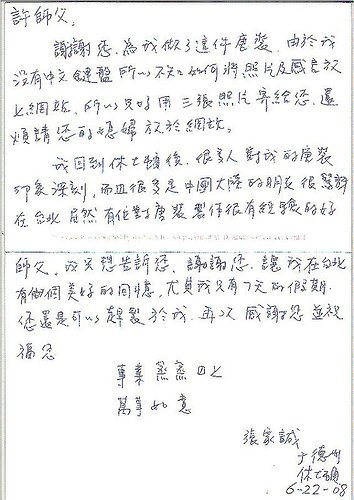 許師父.
謝謝您, 為我做了這件唐裝. 由於我
沒有中文鍵盤 所以不知如何將照片及感言放
上網站, 所以只好用三張照片寄給您, 還
煩請您的媳婦放於網站.
我回到休士頓後, 很多人對我的唐裝
印象深刻, 而且很多是中國大陸的朋友 很驚訝
在台北居然有位對唐裝製作很有經驗的好
師父, 我只想告訴您, 謝謝您, 讓我在台北
有個美好的回憶, 尤其我只有7天的假期.
您還是可以趕製於我. 再次感謝您 並祝
福您
事業蒸蒸日上
萬事如意
張家誠
于德州
休士頓
6-22-08